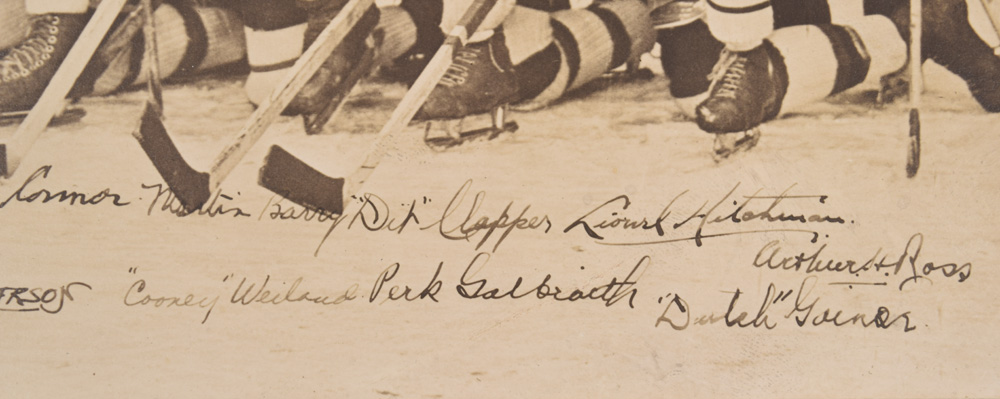 Connor Martin Barry "Dit" Clapper Lionel Hitchman.
Arthur H. Ross
ERSON "Cooney" Weiland Perk Galbraith "Dutch" Gainor.